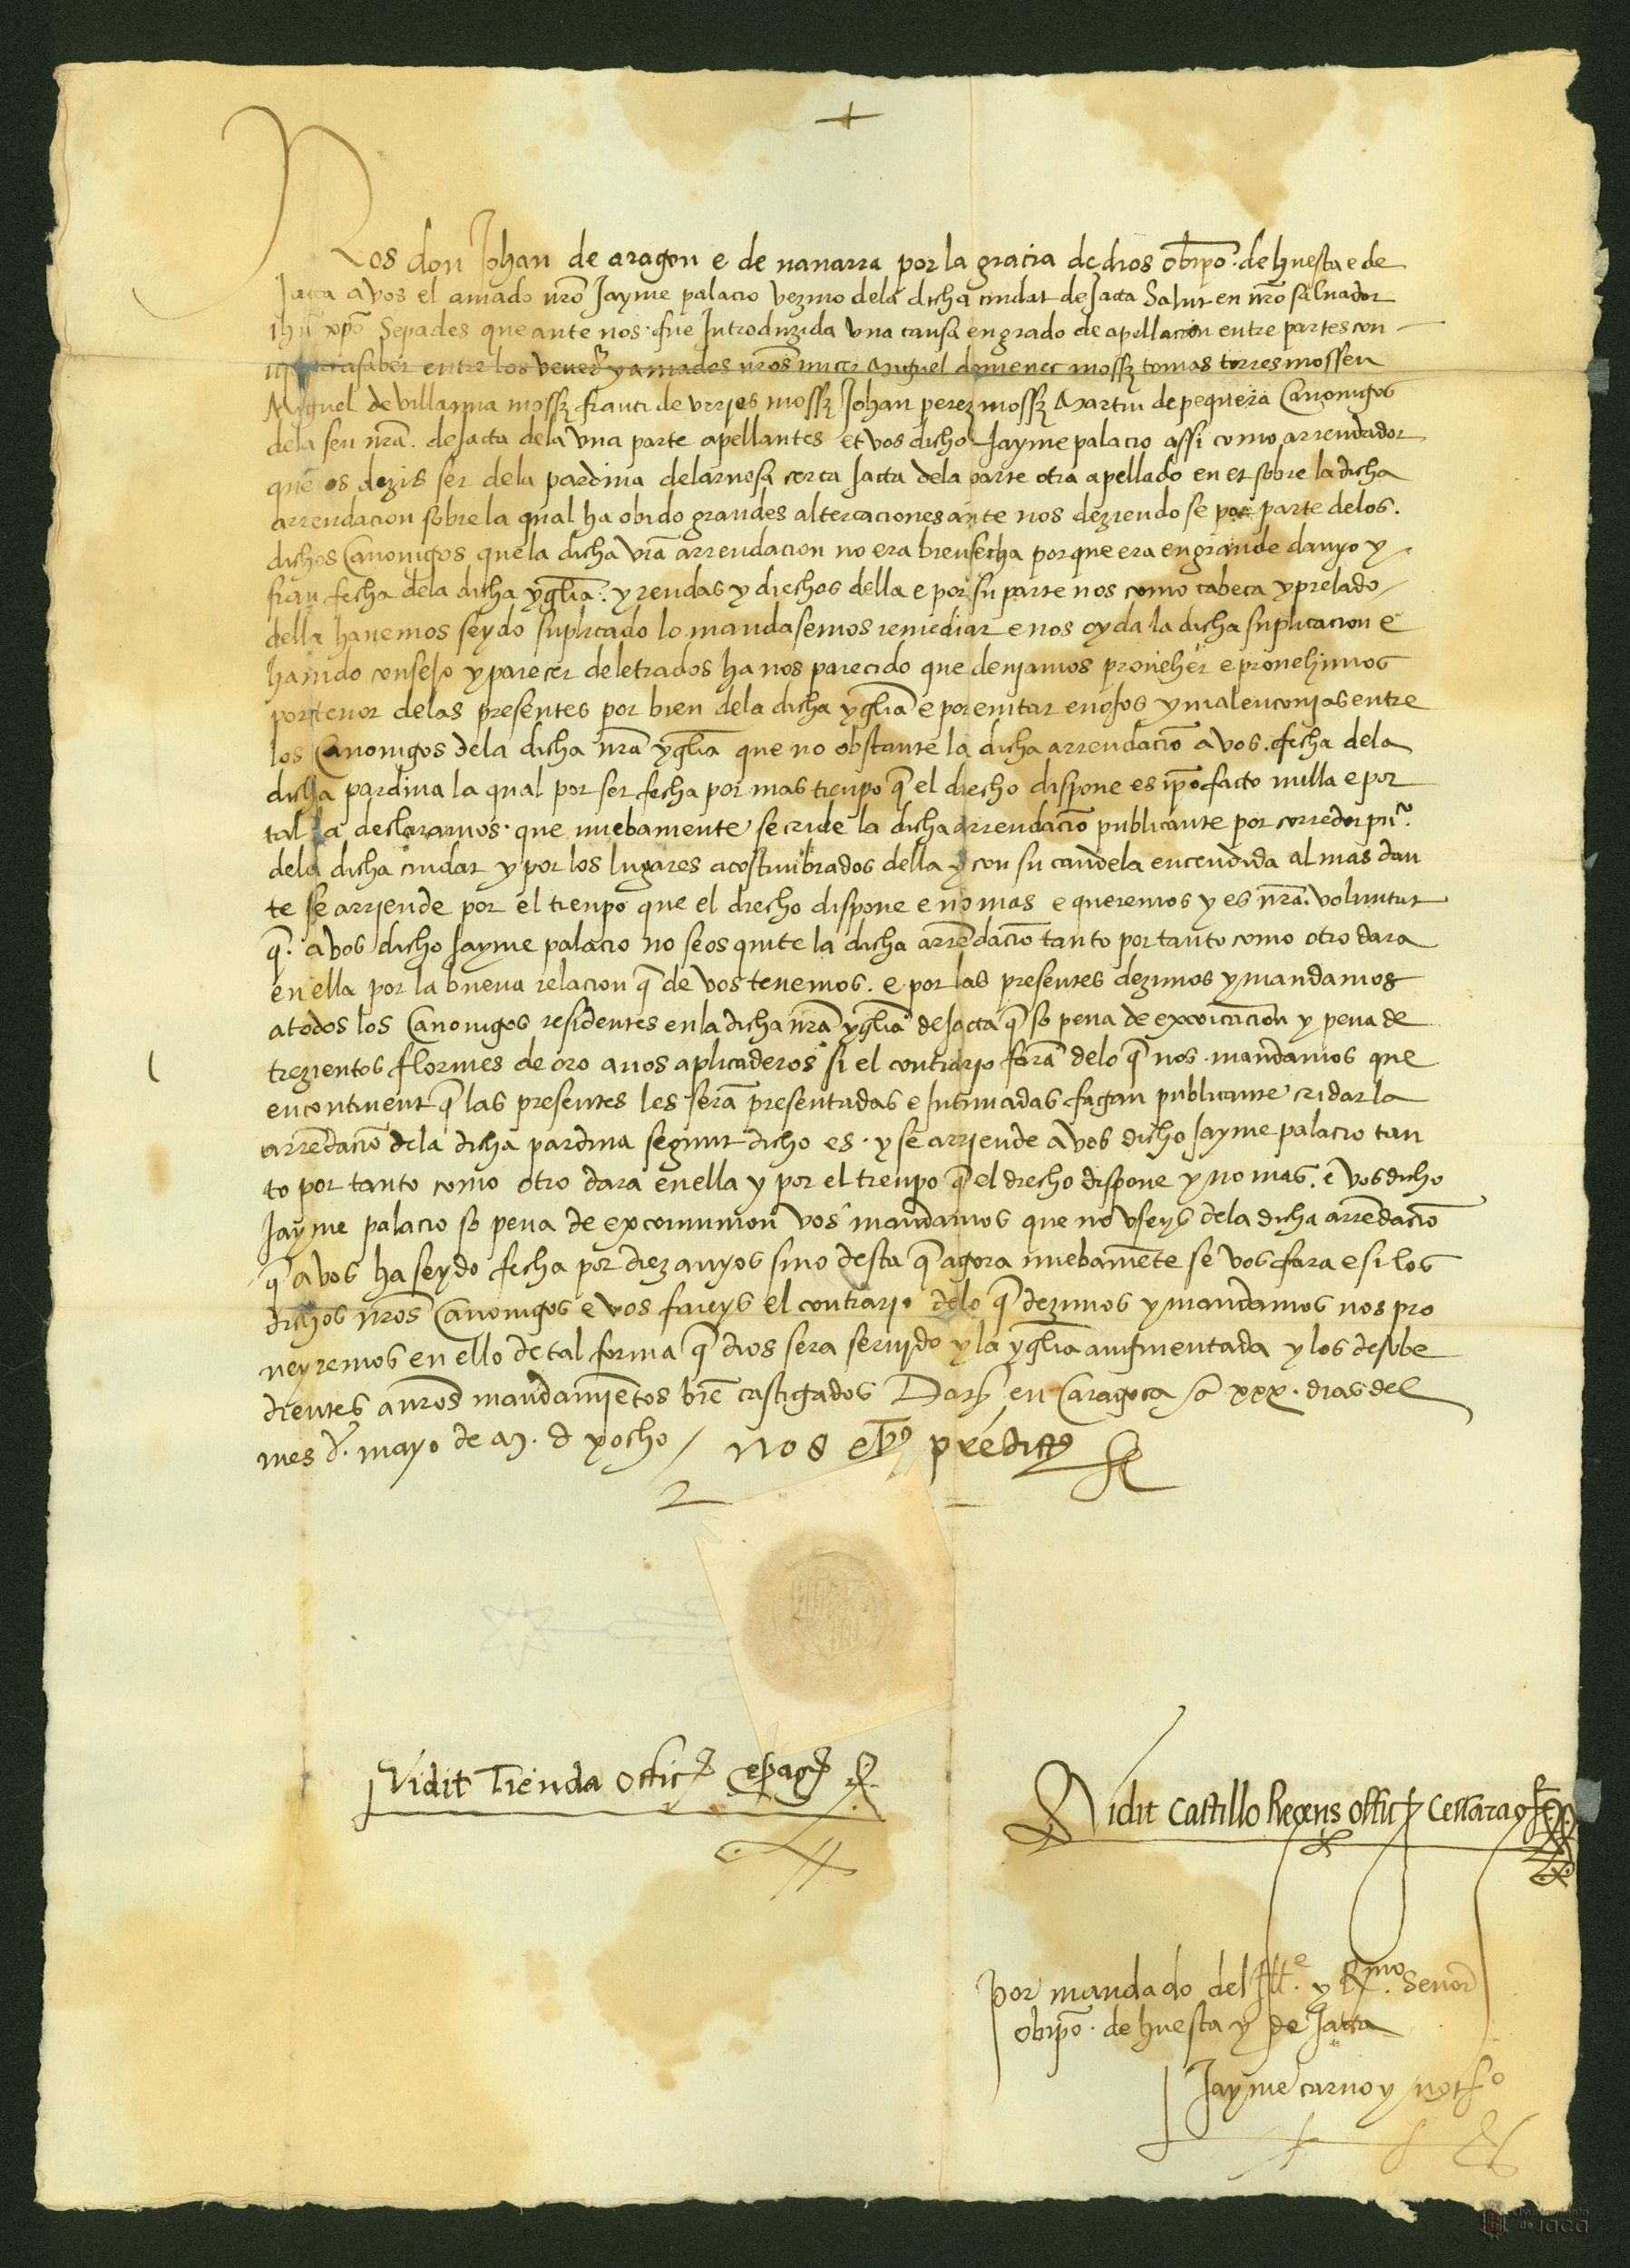 Nos don Johan de aragon e de nauarra por la gracia de dios obipo. de huesca e de
Jacca a vos el amado nro Jayme palacio vezino dela dicha ciudat de Jacca Salut en nro saluador
ihu xpo Sepades que ante nos fue Introduzida vna causa en grado de apellacion entre partes con
asaber entre los vener y amados nros micer Miguel domenec moss tomas torres mossen
Miguel de villanua moss franci de vrries moss Johan perez moss Martin de pequera Canonigos
dela seu nra. de Jacca dela vna parte apellantes et vos dicho Jayme palacio assi como arrendador
que os dezis ser dela pardina delarnosa cerca Jacca dela parte otra apellado en et sobre la dicha
arrendacion sobre la qual ha obido grandes altercaciones ante nos deziendo se por parte delos.
dichos Canonigos que la dicha vra arrendacion no era bien fecha porque era en grande danyo y
frau fecha dela dicha yglia. y rendas y drechos della e por su parte nos como cabeca y prelado
della hauemos seydo suplicado lo mandasemos remediar e nos oyda la dicha suplicacion e
hauido consejo y parecer de letrados ha nos parecido que deuiamos proueher e prouehimos
por tenor delas presentes por bien dela dicha yglia e por euitar enojos y malenconias entre
los Canonigos dela dicha nra yglia que no obstante la dicha arrendacio a vos. fecha dela
dicha pardina la qual por ser fecha por mas tienpo q el drecho dispone es ipo facto nulla e por
tal la declaramos. que nuebamente se cride la dicha arrendacio publicante por corredor pu.
dela dicha ciudat y por los lugares acostunbrados della y con su candela encendida al mas dan
te se arriende por el tienpo que el drecho dispone e no mas e queremos y es nra. voluntat
q. a vos dicho Jayme palacio no se os quite la dicha arrendacio tanto por tanto como otro dara
en ella por la buena relacion q de vos tenemos. e por las presentes dezimos y mandamos
a todos los Canonigos residentes en la dicha nra yglia de Jacca q so pena de excoicacion y pena de
trezientos florines de oro a nos aplicaderos si el contrario fara delo q nos. mandamos que
encontinent q las presentes les sera presentadas e Intimadas fagan publicante cridar la
arrendacio dela dicha pardina segunt dicho es. y se arriende a vos dicho Jayme palacio tan
to por tanto como otro dara en ella y por el tienpo q el drecho dispone y no mas. e vos dicho
Jayme palacio so pena de excomunion vos mandamos que no vseys dela dicha arrendacio
q a vos ha seydo fecha por diez anyos sino desta q agora nuebamente se vos fara e si los
dichos nros Canonigos e vos faueys el contrario delo q dezimos y mandamos nos pro
ueyremos en ello de tal forma q dios sera seruido y la yglia aumentada y los desobe
dientes a nros mandamientos bie castigados Dat en Caragoca a xxx. dias del
mes d. mayo de M. d y ocho / nos epo predictus
Vidit Tienda offic
Vidit Castillo Regens offic Cesarag
por mandado del Ill.e y R.mo Senor
obipo. de huesca y de Jacca
Jayme carnoy not.o
Ayuntamiento
de Jaca